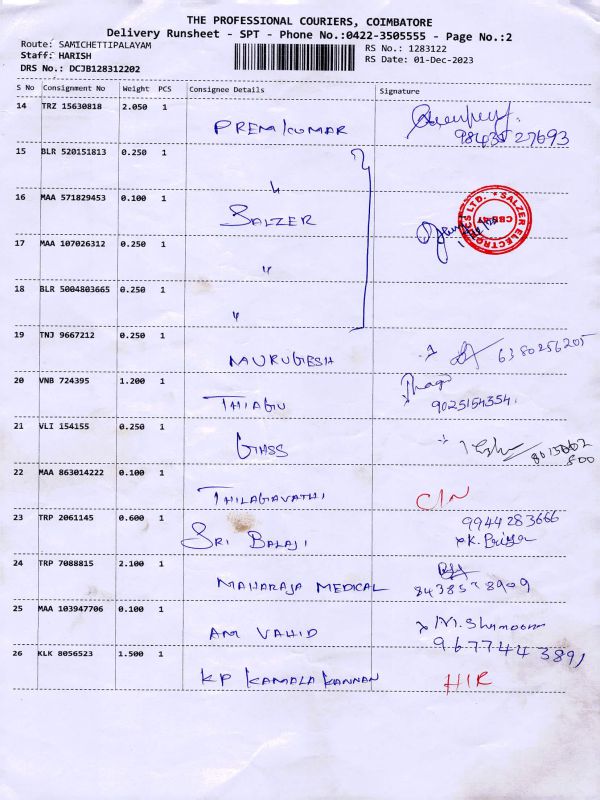 THE PROFESSIONAL COURIERS, COIMBATORE
Delivery Runsheet - SPT - Phone No.:0422-3505555 - Page No.:2
Route: SAMICHETTIPALAYAM
Staff: HARISH
DRS No.: DCJB128312202
RS No.: 1283122
RS Date: 01-Dec-2023
S No Consignment No Weight PCS Consignee Details Signature
14 TRZ 15630818 2.050 1
PREM KUMAR 98435 27693
15 BLR 520151813 0.250 1
"
16 MAA 571829453 0.100 1
SALZER
SALZER ELECTRONICS LTD. * CBE-47
17 MAA 107026312 0.250 1
"
18 BLR 5004803665 0.250 1
"
19 TNJ 9667212 0.250 1
MURUGESH 6380256205
20 VNB 724395 1.200 1
THIAGU
9025154354.
21 VLI 154155 0.250 1
22 MAA 863014222 0.100 1
THILAGAVATHI
23 TRP 2061145 0.600 1
SRI BALAJI 9944283666
K. Priya
24 TRP 7088815 2.100 1
MAHARAJA MEDICAL
25 MAA 103947706 0.100 1
AM VAHID
9677443891
26 KLK 8056523 1.500 1
KP KAMALA KANNAN